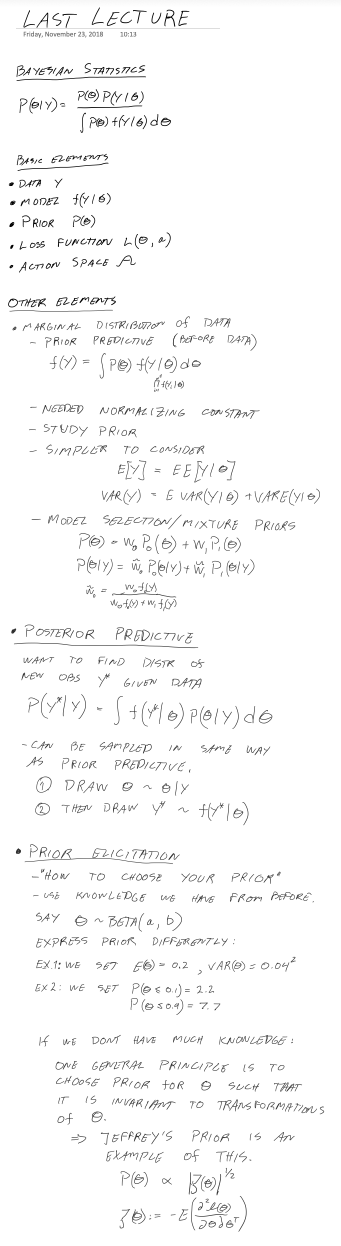 LAST LECTURE
Friday, November 23, 2018 10:13
BAYESIAN STATISTICS
P(θ|Y) = P(θ) P(Y|θ) / ∫ P(θ) f(Y|θ) dθ
BASIC ELEMENTS
• DATA Y
• MODEL f(Y|θ)
• PRIOR P(θ)
• LOSS FUNCTION L(θ, a)
• ACTION SPACE A
OTHER ELEMENTS
• MARGINAL DISTRIBUTION OF DATA
- PRIOR PREDICTIVE (BEFORE DATA)
f(Y) = ∫ P(θ) f(Y|θ) dθ
∏ f(Yi|θ)
- NEEDED NORMALIZING CONSTANT
- STUDY PRIOR
- SIMPLER TO CONSIDER
E[Y] = E E[Y|θ]
VAR(Y) = E VAR(Y|θ) + VAR E(Y|θ)
- MODEL SELECTION/MIXTURE PRIORS
P(θ) = W₀ P₀(θ) + W₁ P₁(θ)
P(θ|Y) = W̃₀ P₀(θ|Y) + W̃₁ P₁(θ|Y)
W̃₀ = W₀ f₀(Y) / W₀ f₀(Y) + W₁ f₁(Y)
• POSTERIOR PREDICTIVE
WANT TO FIND DISTR OF
NEW OBS Y* GIVEN DATA
P(Y*|Y) = ∫ f(Y*|θ) P(θ|Y) dθ
- CAN BE SAMPLED IN SAME WAY
AS PRIOR PREDICTIVE.
① DRAW θ ~ θ|Y
② THEN DRAW Y* ~ f(Y*|θ)
• PRIOR ELICITATION
- "HOW TO CHOOSE YOUR PRIOR"
- USE KNOWLEDGE WE HAVE FROM BEFORE.
SAY θ ~ BETA(a, b)
EXPRESS PRIOR DIFFERENTLY:
EX.1: WE SET E(θ) = 0.2 , VAR(θ) = 0.04²
EX 2: WE SET P(θ ≤ 0.1) = 2.2
P(θ ≤ 0.9) = 7.7
IF WE DONT HAVE MUCH KNOWLEDGE:
ONE GENERAL PRINCIPLE IS TO
CHOOSE PRIOR FOR θ SUCH THAT
IT IS INVARIANT TO TRANSFORMATIONS
OF θ.
⇒ JEFFREY'S PRIOR IS AN
EXAMPLE OF THIS.
P(θ) ∝ |J(θ)|^1/2
J(θ) := -E(∂²l(θ) / ∂θ∂θᵀ)